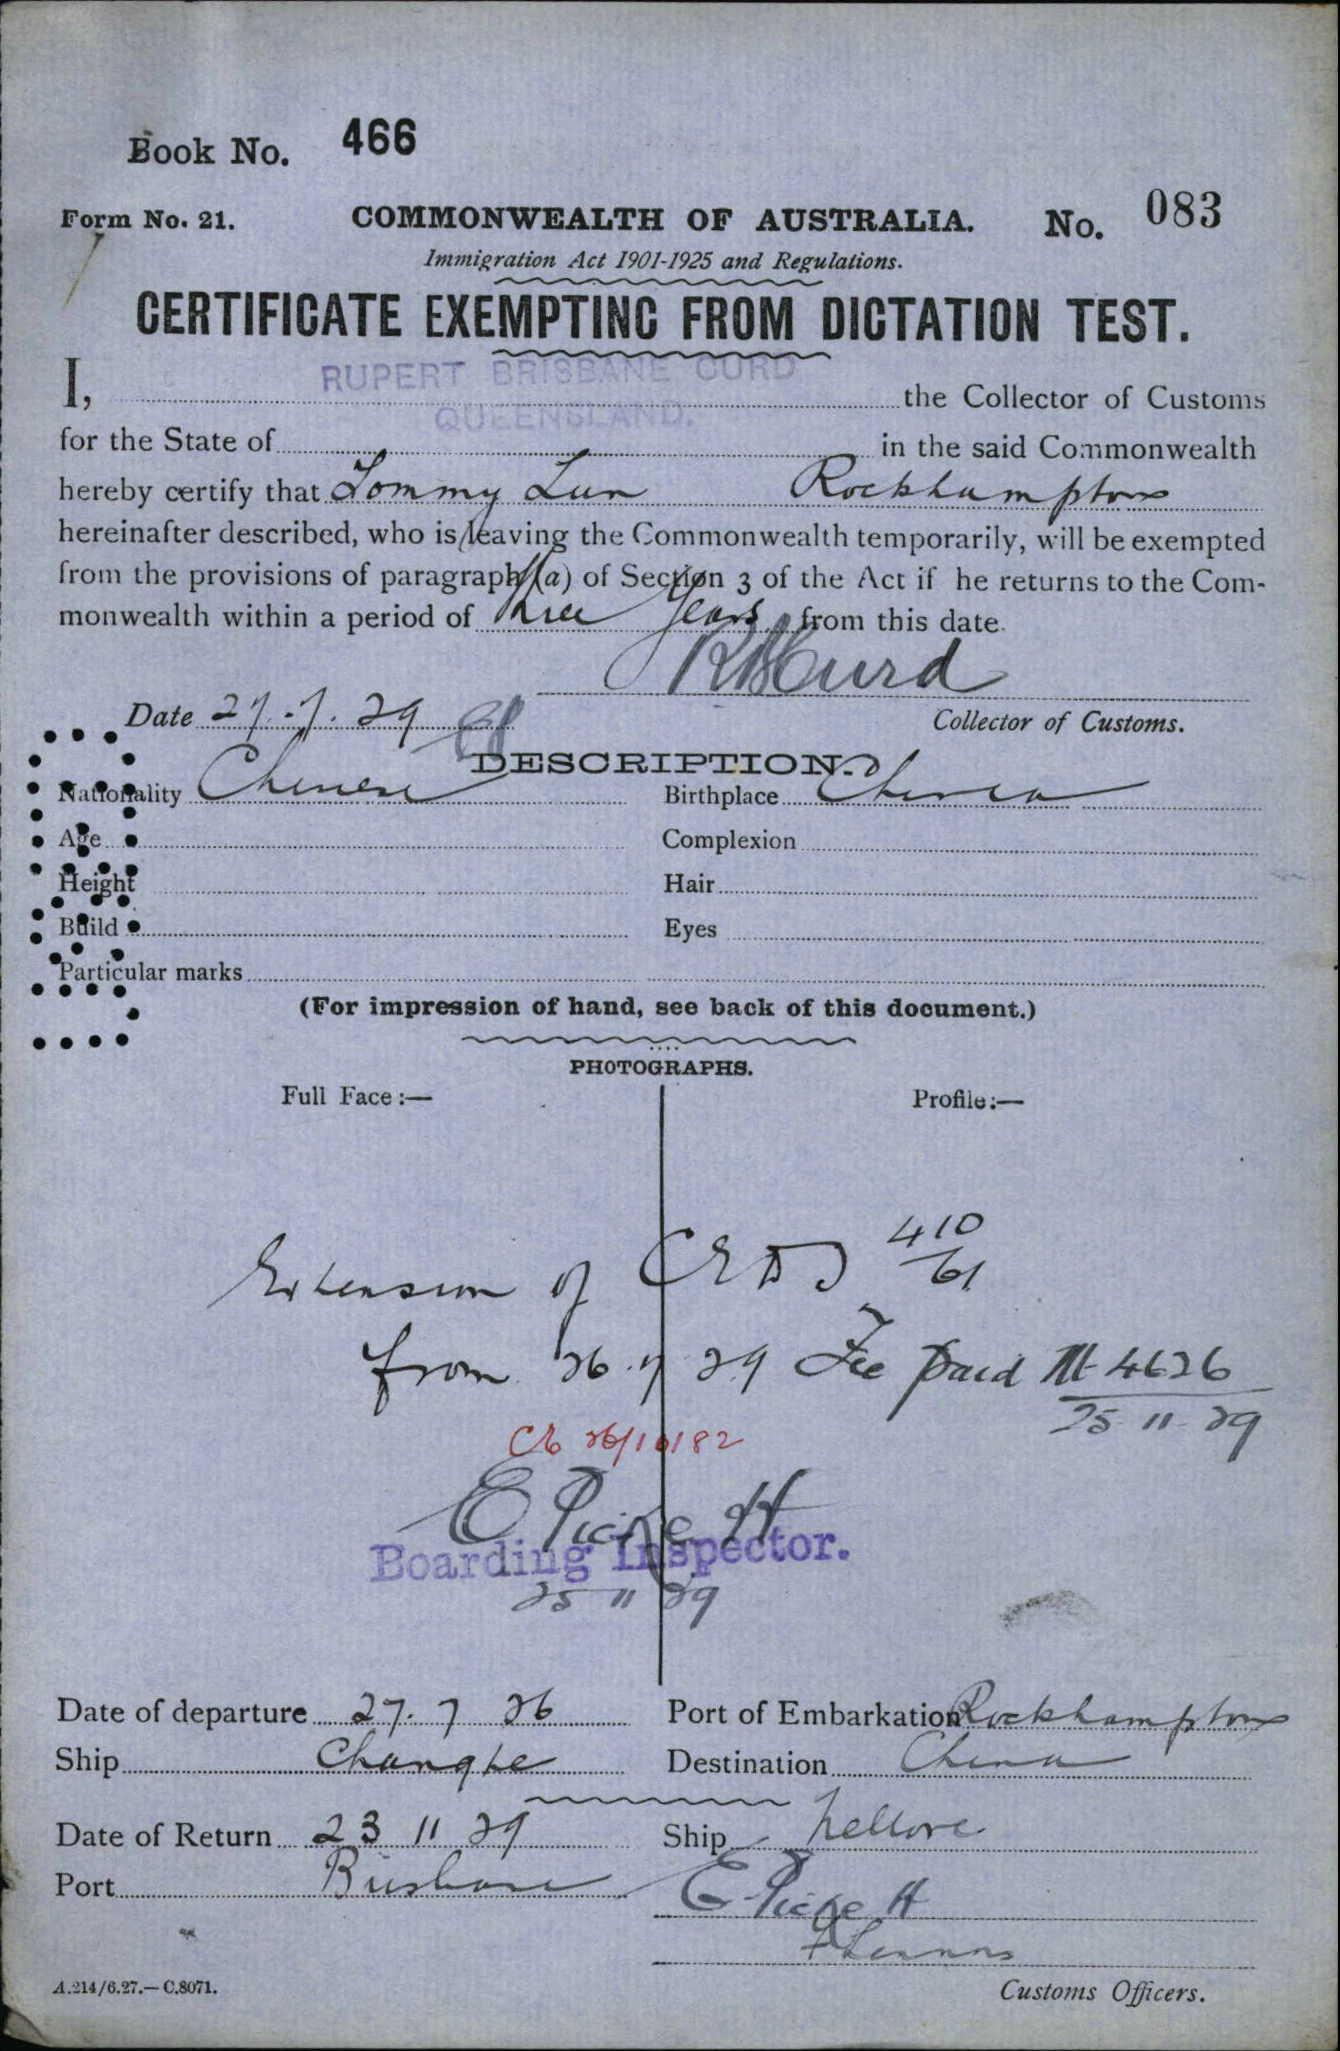 Book No. 466
Form No. 21. COMMONWEALTH OF AUSTRALIA. No. 083
Immigration Act 1901-1925 and Regulations.
CERTIFICATE EXEMPTING FROM DICTATION TEST.
I, RUPERT BRISBANE CURD the Collector of Customs
QUEENSLAND.
for the State of in the said Commonwealth
hereby certify that Tommy Lun Rockhampton
hereinafter described, who is leaving the Commonwealth temporarily, will be exempted
from the provisions of paragraph (a) of Section 3 of the Act if he returns to the Com-
monwealth within a period of three years from this date.
R B Curd
Date 27.7.29 Collector of Customs.
DESCRIPTION.
Nationality Chinese Birthplace China
Age Complexion
Height Hair
Build Eyes
Particular marks
(For impression of hand, see back of this document.)
PHOTOGRAPHS.
Full Face:— Profile:—
Extension of CEDT 410/61
from 26.7.29 Fee paid 4626
25 11 29
26/10182
Boarding Inspector.
25 11 29
Date of departure 27.7 26 Port of Embarkation Rockhampton
Ship Changte Destination China
Date of Return 23 11 29 Ship Nellore
Port Brisbane
A.214/6.27.—C.8071. Customs Officers.